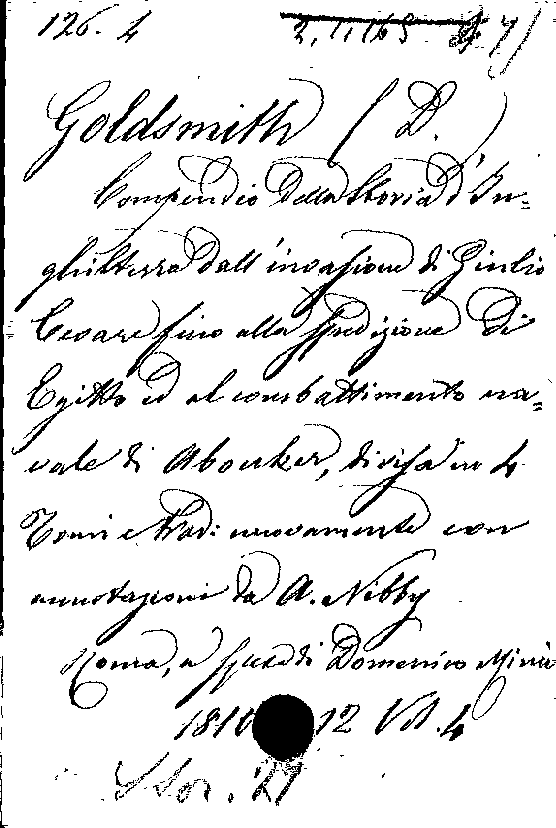 126. 4
Goldsmith (D.)
Compendio della Storia d'In=
ghilterra dall'invasione di Giulio
Cesare fino alla spedizione di
Egitto ed al combattimento na=
vale di Abouker, divisa in 4
Tomi e trad: nuovamente con
annotazioni da A. Nibby
Roma, a spese di Domenico
181 12 Vol. 4